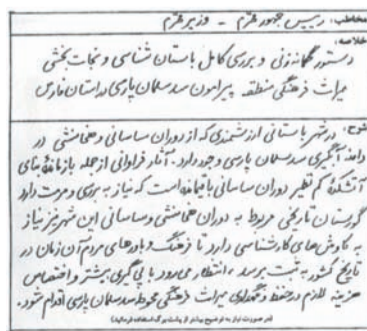 مخاطب: رییس جمهور محترم - وزیر محترم
خلاصه:
دستور گمانه زنی و بررسی کامل باستان شناسی و نجات بخشی
میراث فرهنگی منطقه پیرامون سد سلمان پارسی در استان فارس
شرح: درشهر باستانی ارزشمندی که از دوران ساسانی و هخامنشی در
دامنه آبگیری سد سلمان پارسی وجود دارد. آثار فراوانی از جمله بازمانده بنای
آتشکده کم نظیر دوران ساسانی باقیمانده است که نیاز به بررسی و مرمت دارد
گورستان تاریخی مربوط به دوران هخامنشی و ساسانی این شهر نیز نیاز
به کاوش های کارشناسی دارد تا فرهنگ و باورهای مردم آن زمان در
تاریخ کشور به ثبت برسد، انتظار می رود با پی گیری بیشتر و اختصاص
هزینه لازم در حفظ و نگهداری میراث فرهنگی محوطه سد سلمان پارسی اقدام شود.
(در صورت نیاز به توضیح بیشتر از پشت برگ استفاده فرمائید)